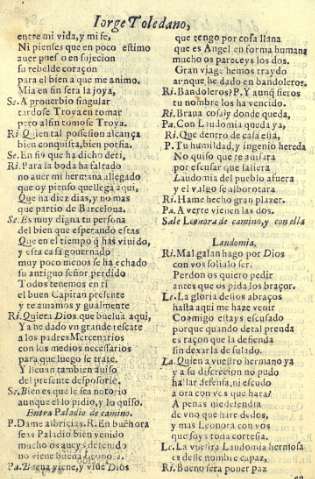 Iorge Toledano,
entre mi vida, y mi fe,
Ni pienses que en poco estimo
auer puesto en sujecion
su rebelde coraçon
para el bien à que me animo.
Mia en fin sera la joya,
Se. A prouerbio singular
tardose Troya en tomar
pero al fin tomose Troya.
Ri. Quien tal possesion alcança
bien conquista, bien porfia.
Se. En fin que ha dicho
Ri. Para la boda ha faltado
no auer mi hermana allegado
que oy pienso que llega aqui,
Que ha diez dias, y no mas
que partio de Barcelona.
Se. Es muy digna tu persona
del bien que esperando estas
Que en el tiempo q̃ has viuido,
y esta casa gouernado
muy poco menos se ha echado
su antiguo señor perdido
Todos tenemos en ti
el buen Capitan presente
y te amamos y gualmente
Ri. Quiera Dios que buelua aqui,
Ya he dado vn grande rescate
a los padres Mercenarios
con los medios necessarios
para que luego se trate,
Y lleuan tambien auiso
del presente desposorio.
Se. Bien es que le sea notorio
aunque el lo pidio, y lo quiso.
Entra Paladio de camino.
P. Dame albricias. R. En buẽ hora
seas Paladio bien venido
mucho os aueys detenido
no viene buena Leonora.
Pa. Buena viene, y viue Dios
que tengo por cosa llana
que es Angel en forma humana
mucho os pareceys los dos.
Gran viage hemos traydo
aunque he dado en bandoleros.
Ri. Bandoleros? P. Y aunq̃ fieros
tu nombre los ha vencido.
Ri. Braua cosa y donde queda,
Pa. Con Laudomia queda ya,
Ri. Que dentro de casa està,
P. Tu humildad, y ingenio hereda
No quiso que te auisara
por escusar que saliera
Laudomia del pueblo afuera
y el vulgo se alborotara.
Ri. Hame hecho gran plazer.
Pa. A verte vienen las dos.
Sale Leonora de camino, y con ella
Laudomia.
Ri. Mal galan hago por Dios
con vos solia lo ser.
Perdon os quiero pedir
antes que os pida los braços.
Le. La gloria destos abraços
hasta aqui me haze venir
Conmigo estays escusado
porque quando detal prenda
es raçon que la defienda
sin dexarla de su lado.
La. Quien a vuestro hermano ya
y a su discrecion no pudo
hallar defensa, ni escudo
a ora con vos que hara?
A penas me defendia
de vno que hare de dos,
y mas Leonora con vos
que soys toda cortesia.
Le. La vuestra Laudomia hermosa
es desse nombre capaz,
Ri. Bueno sera poner paz